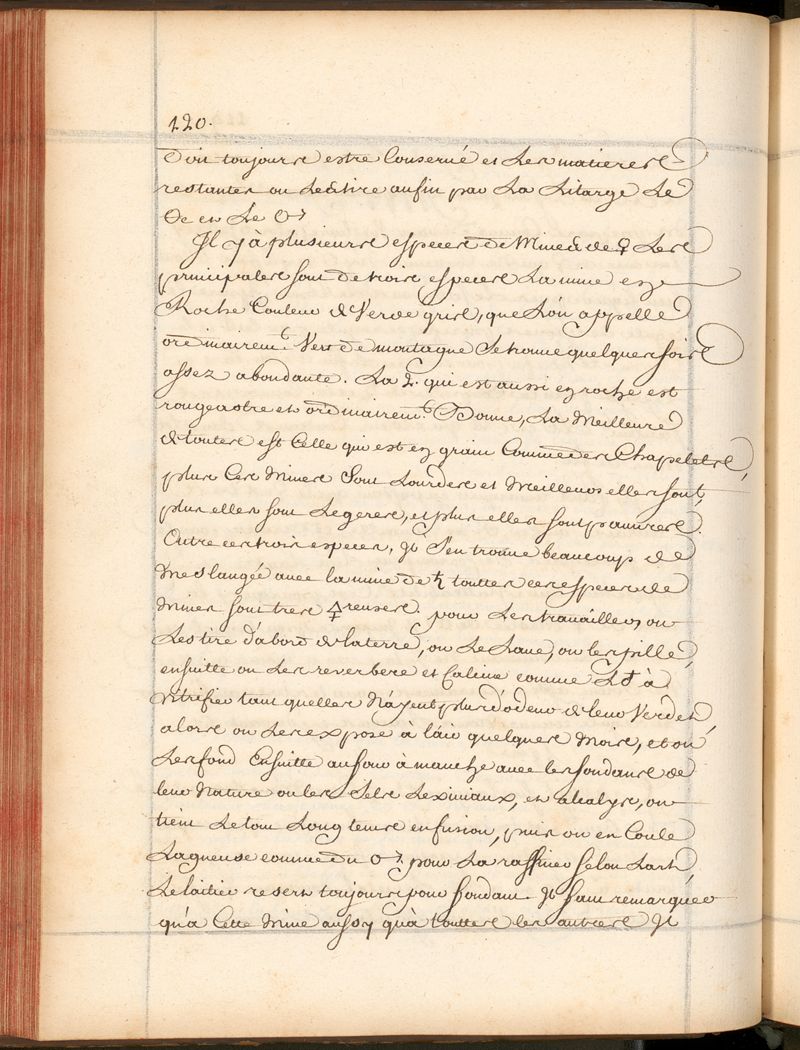 120.
doit toujours estre Conservé et Les matieres
restantes on Les tire enfin par La Litarge Le
et Le ♂
Il y à plusieurs especes de Mines de ♀ Les
principales sont de trois especes La mine en
Roche Couleur de Verde gris, que Lon appelle
ordinairemt. Vers de montagne Se trouve quelques fois
assez abondante. La 2. qui est aussi en roche est
rougeastre et ordinairemt. Bonne, La Meilleure
de toutes est Celle qui est en grain Comme des Chapelets,
plus Ces Mines Sont Lourdes et Meilleures elles sont,
plus elles sont Legeres, et plus elles sont pauvres.
Outre ces trois especes, Il s'en trouve beaucoup de
Meslangée avec la mine de ♄ touttes ces especes de
Mines sont tres 🜍reuses. pour Les travailler, on
Les tire d'abord de la terre, on Le Lave, on les pille,
ensuitte on Les reverbere et Calcine comme L♁ à
vitrifier tant quelles N'ayent plus d'odeur de leur Verdet,
alors on Les expose à l'air quelques Mois, et on
Les fond Ensuitte au four à manche avec les fondans de
leur Nature ou les Sels Lexiviaux, et alcalys, on
tient Le tout Long tems en fusion, puis on en Coule
La gueuse comme du ♂. pour La raffiner selon Lart,
Le laitier resert toujours pour fondant. Il faut remarquer
qu'a Cette Mine aussy qu'à touttes les autres Il